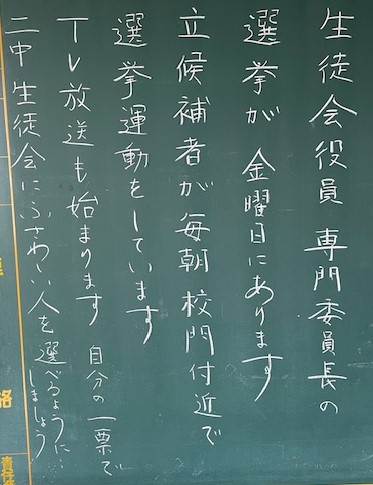 生徒会役員 専門委員長の
選挙が 金曜日にあります
立候補者が毎朝 校門付近で
選挙運動をしています
TV放送も始まります 自分の一票で
二中生徒会にふさわしい人を選べるように…
しましょう
格
責任